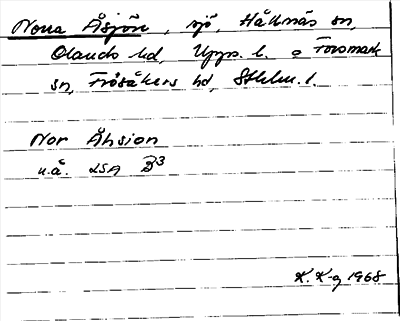 Norra Åsjön, sjö, Hållnäs sn,
Olands hd, Upps. l. o Forsmark
sn, Frösåkers hd, Sthlm. l.
Nor Åhsion
u.å. LSA B3
K. K-g 1968